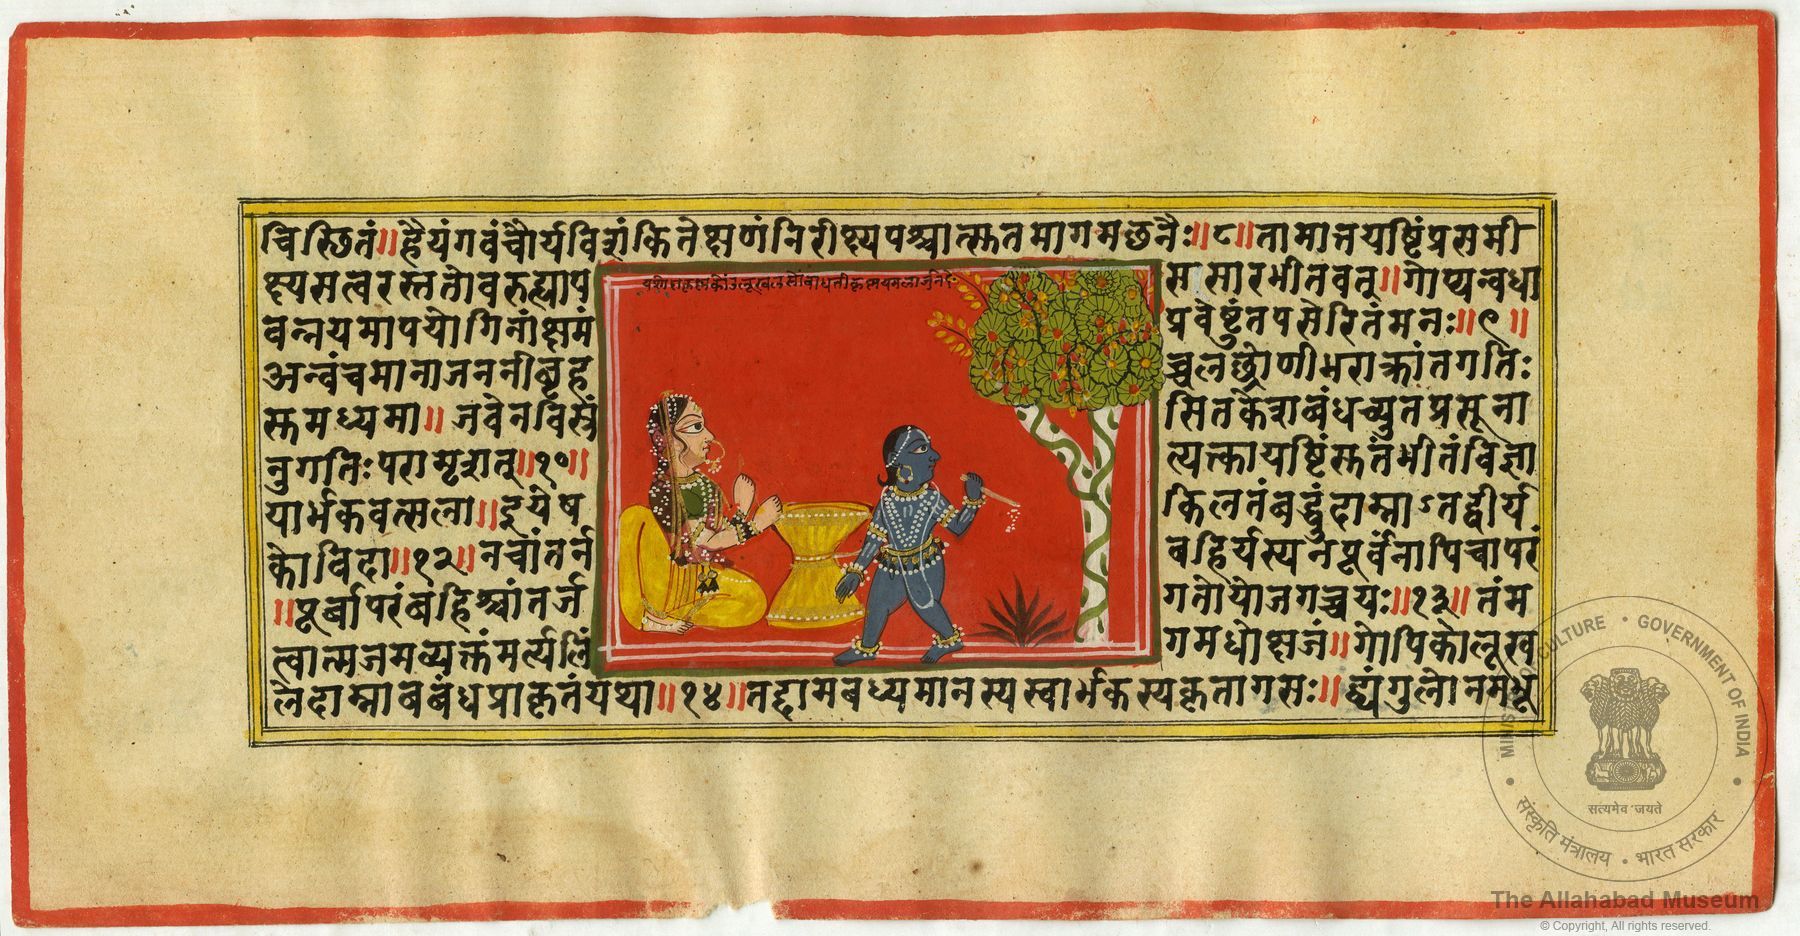 चिस्थितं॥हैयंगवंचौर्यविशंकितेक्षणंनिरीक्ष्यपश्चात्स्ततमागमछनैः॥८॥तामात्तयष्टिंप्रसमी
यशोदाकृष्णकोउलूखलसोबाधतीकृष्णयमलार्जुनदे
क्ष्यसत्वरस्ततोवरुह्याप ससारभीतवत्॥गोप्यन्वधा
वन्नयमापयोगिनांक्षमं प्रवेष्टुंतपसेरितंमनः॥९॥
अन्वंचमानाजननीबृह च्चलछ्रोणीभराक्रांतगतिः
स्तमध्यमा॥जवेनविस्रं सितकेशबंधच्युतप्रसूना
नुगतिःपरामृशत्॥१०॥ त्यक्तायष्टिंस्ततंभीतंविज्ञा
यार्भकवत्सला॥इयेष किलतंबद्धुंदाम्नाऽतद्वीर्य
कोविदा॥१२॥नचांतर्न बहिर्यस्यनपूर्वंनापिचापरं
॥पूर्बापरंबहिश्चांतर्ज गतोयोजगच्चयः॥१३॥तंम
त्वात्मजमव्यक्तंमर्त्यलिं गमधोक्षजं॥गोपिकोलूख
लेदाम्नाबबंधप्राकृतंयथा॥१४॥तद्दामबध्यमानस्यस्वार्भकस्यकृतागसः॥द्व्यंगुलोनमभू
MINISTRY OF CULTURE • GOVERNMENT OF INDIA
सत्यमेव जयते
संस्कृति मंत्रालय • भारत सरकार
The Allahabad Museum
© Copyright, All rights reserved.